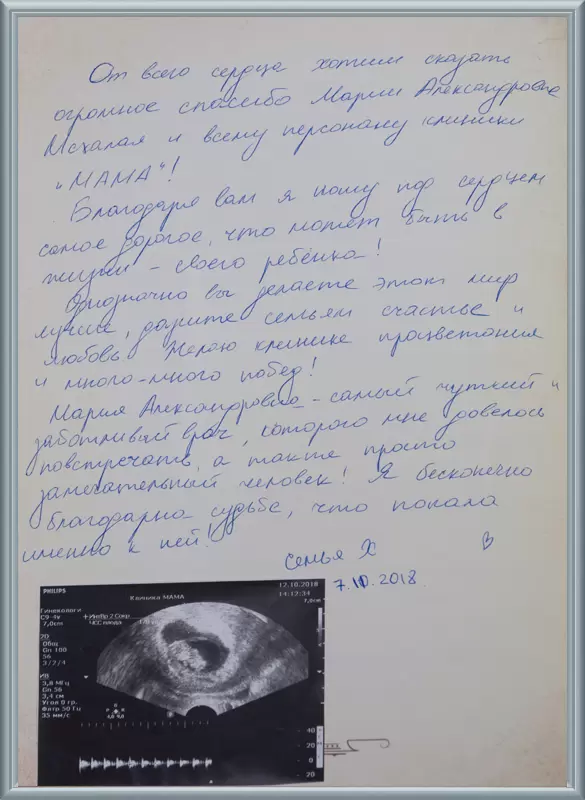 От всего сердца хотим сказать
огромное спасибо Марии Александровне
Мсхалая и всему персоналу клиники
„МАМА"!
Благодаря вам я ношу под сердцем
самое дорогое, что может быть в
жизни – своего ребёнка!
Однозначно вы делаете этот мир
лучше, дарите семьям счастье и
любовь. Желаю клинике процветания
и много-много побед!
Мария Александровна – самый чуткий и
заботливый врач, которого мне довелось
повстречать, а также просто
замечательный человек! Я бесконечно
благодарна судьбе, что попала
именно к ней!
семья Х
7.10.2018
PHILIPS
12.10.2018
14:12:34
Клиника МАМА
Гинекологи
C9-4v
7,0см
+ИмпВр 2 Сокр
ЧСС плода
7,0см
2D
Общ
Gn 100
56
3/2/4
ИВ
3,8 МГц
Gn 56
3,4 см
Угол 0 гр.
Фитр 50 Гц
35 мм/с
40
20
0
20